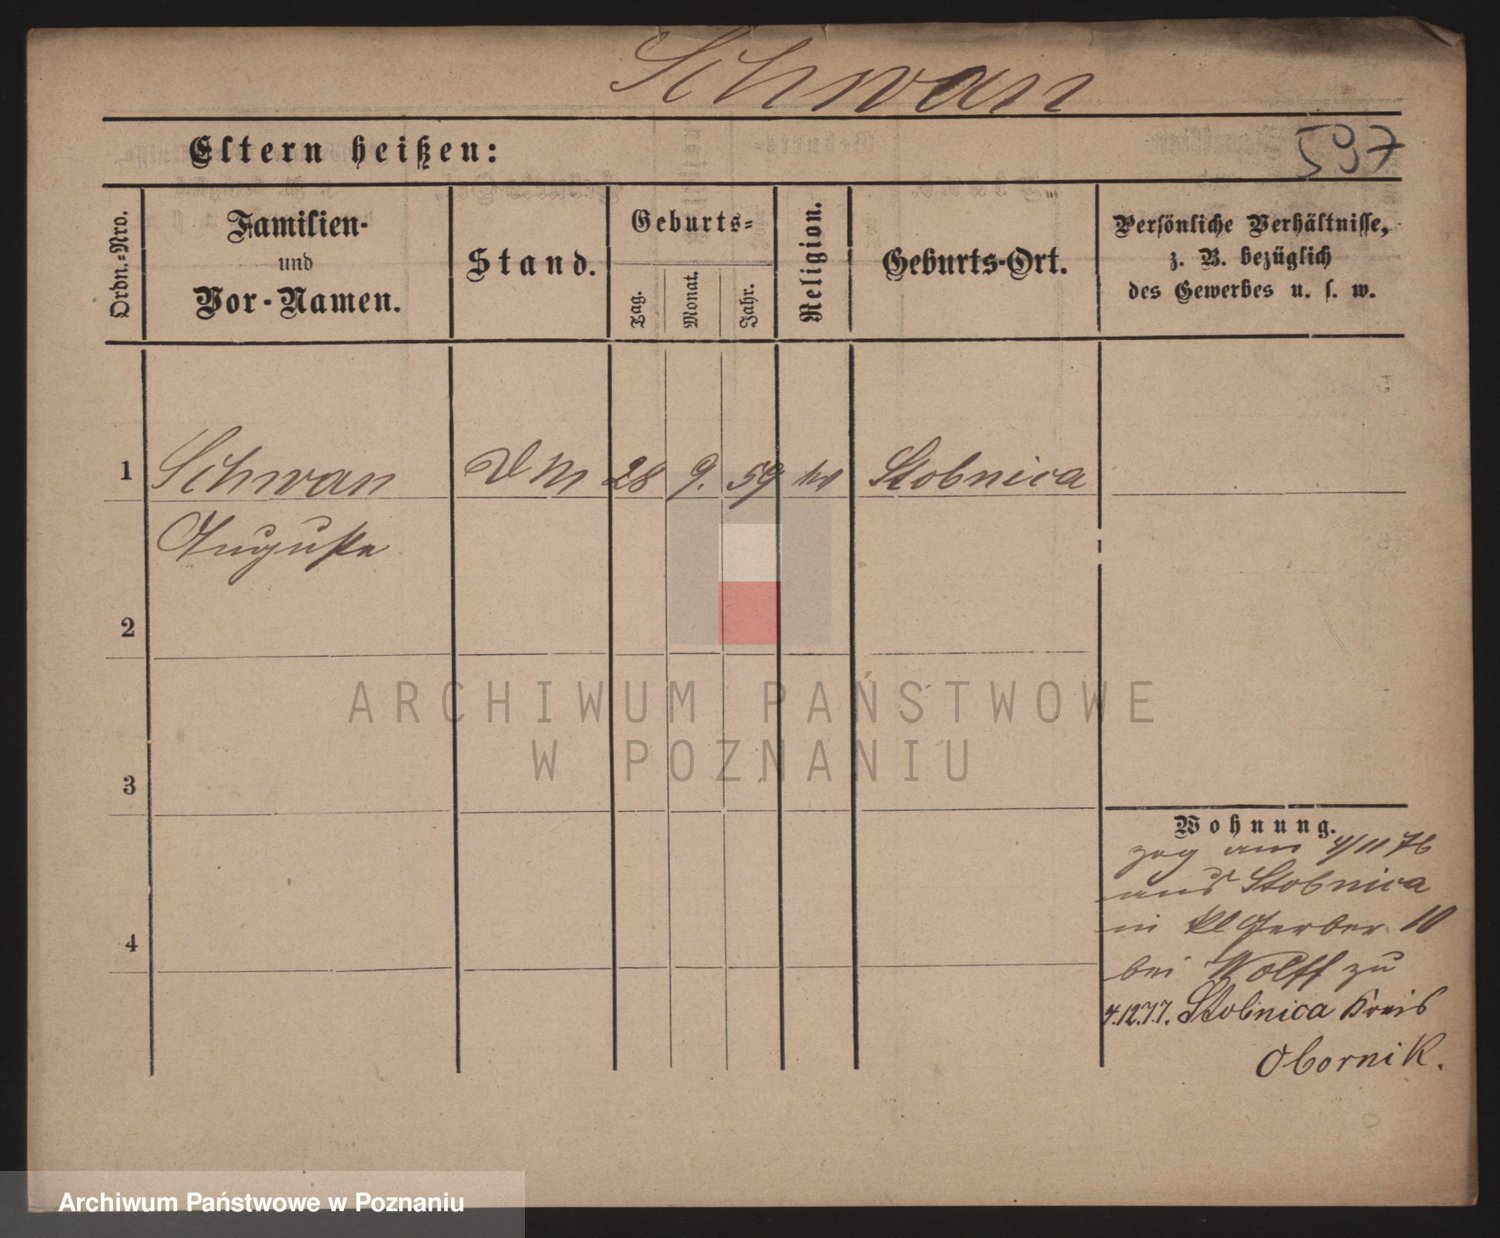 Schwan
Eltern heißen:
597
Ordn.-Nro.
Familien-
und
Vor-Namen.
Stand.
Geburts-
Tag.
Monat.
Jahr.
Religion.
Geburts-Ort.
Persönliche Verhältnisse,
z. B. bezüglich
des Gewerbes u. s. w.
1
Schwan
DM
28
9.
59
Stobnica
Auguste
2
ARCHIWUM PAŃSTWOWE
W POZNANIU
3
Wohnung.
zog am 4/11 76
aus Stobnica
in kl Gerber 10
bei Wolff zu
4.12.77. Stobnica Kreis
Obornik.
4
Archiwum Państwowe w Poznaniu